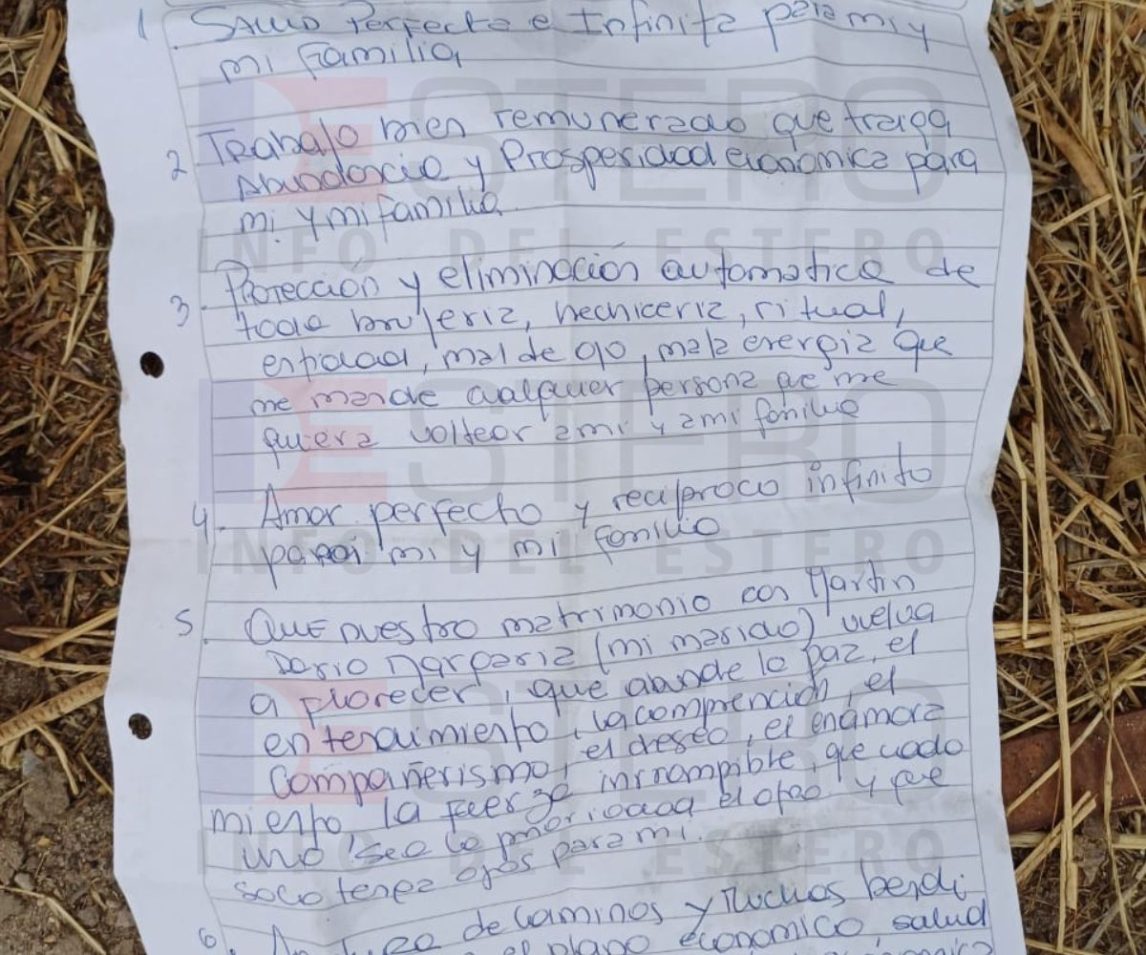 1. Salud Perfecta e Infinita para mi y
mi familia
2. Trabajo bien remunerado que traiga
Abundancia y Prosperidad economica para
mi y mi familia
3. Protección y eliminación automatica de
toda brujeria, hechiceria, ritual,
entidad, mal de ojo, mala energia que
me mande cualquier persona que me
quiera voltear a mi y a mi familia
4. Amor perfecto y reciproco infinito
para mi y mi familia
5. Que nuestro matrimonio con Martin
Dario (mi marido) vuelva
a florecer, que abunde la paz, el
entendimiento, la comprención, el
compañerismo, el deseo, el enamora
miento, la fuerza inrrompible, que cada
uno sea la prioridad del otro y que
solo tenga ojos para mi.
6. de caminos y muchas bendi
el plano economico, salud
ESTERO
INFO DEL ESTERO
ESTERO
INFO DEL ESTERO
ESTERO
INFO DEL ESTERO